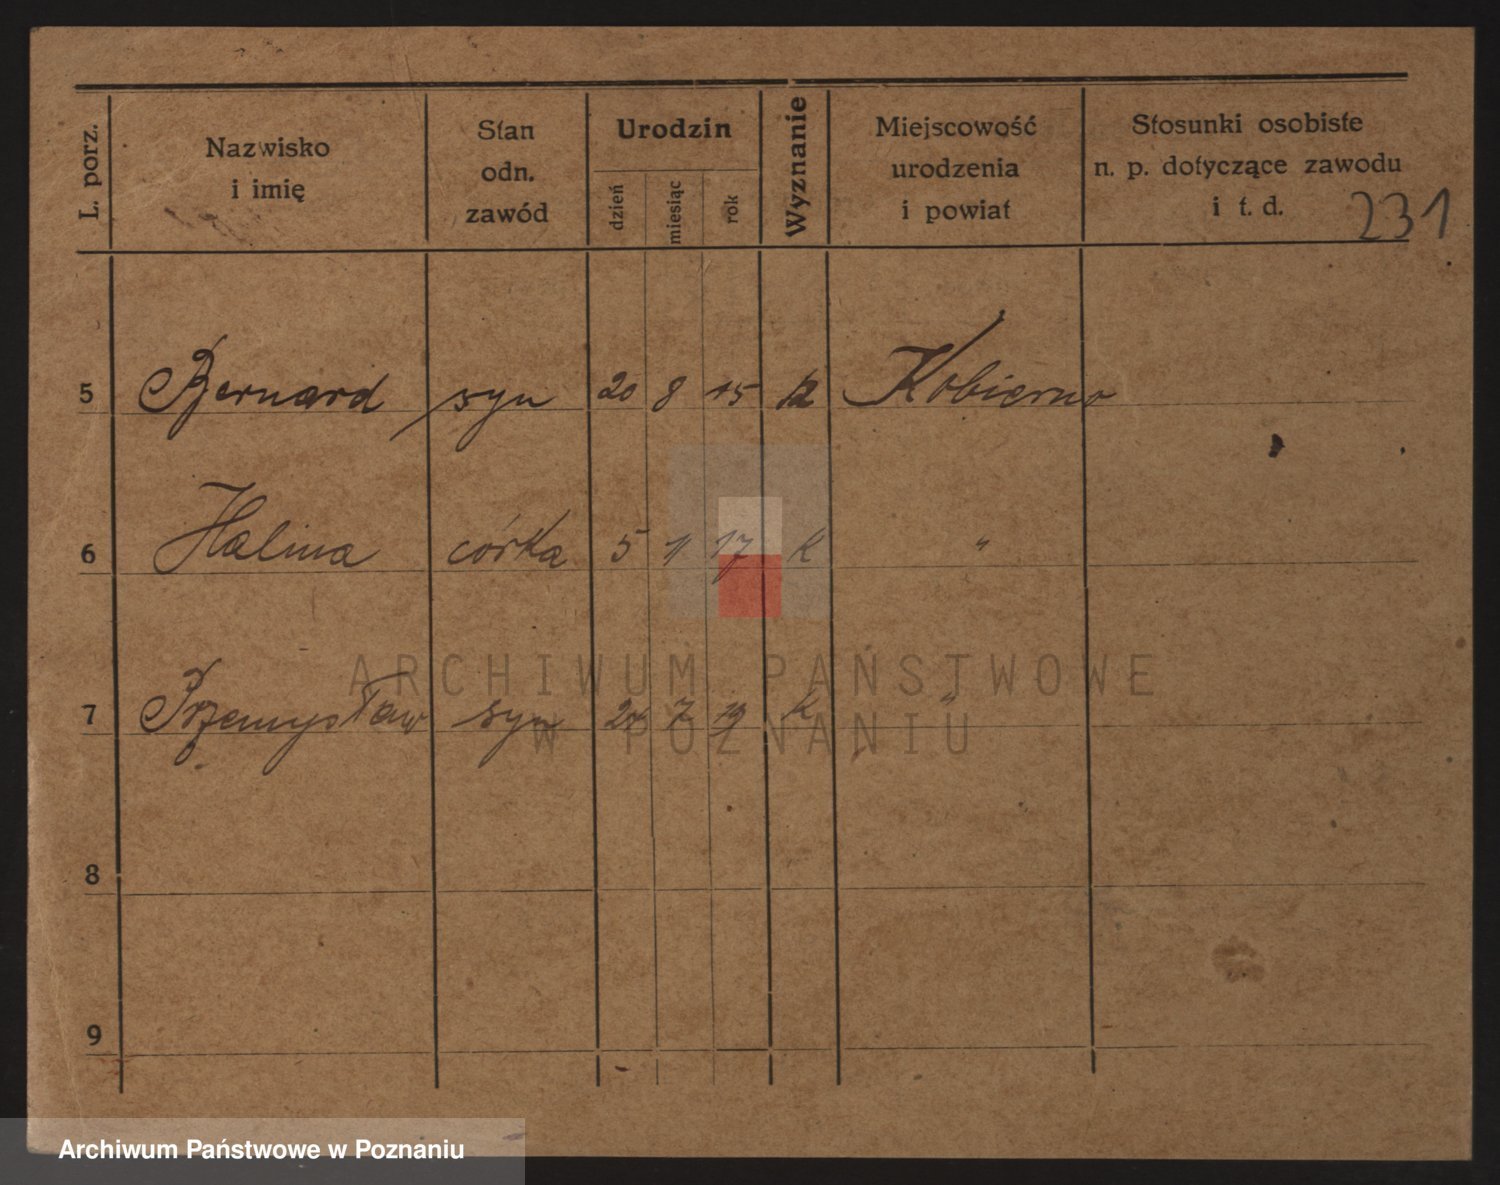 L. porz. Nazwisko i imię Stan odn. zawód Urodzin dzień miesiąc rok Wyznanie Miejscowość urodzenia i powiat Stosunki osobiste n. p. dotyczące zawodu i t. d.
231
5 Bernard syn 20 8 15 k Kobierno
6 Halina córka 5 11 17 k "
7 Przemysław syn 7 19 k "
8
9
ARCHIWUM PAŃSTWOWE
W POZNANIU
Archiwum Państwowe w Poznaniu